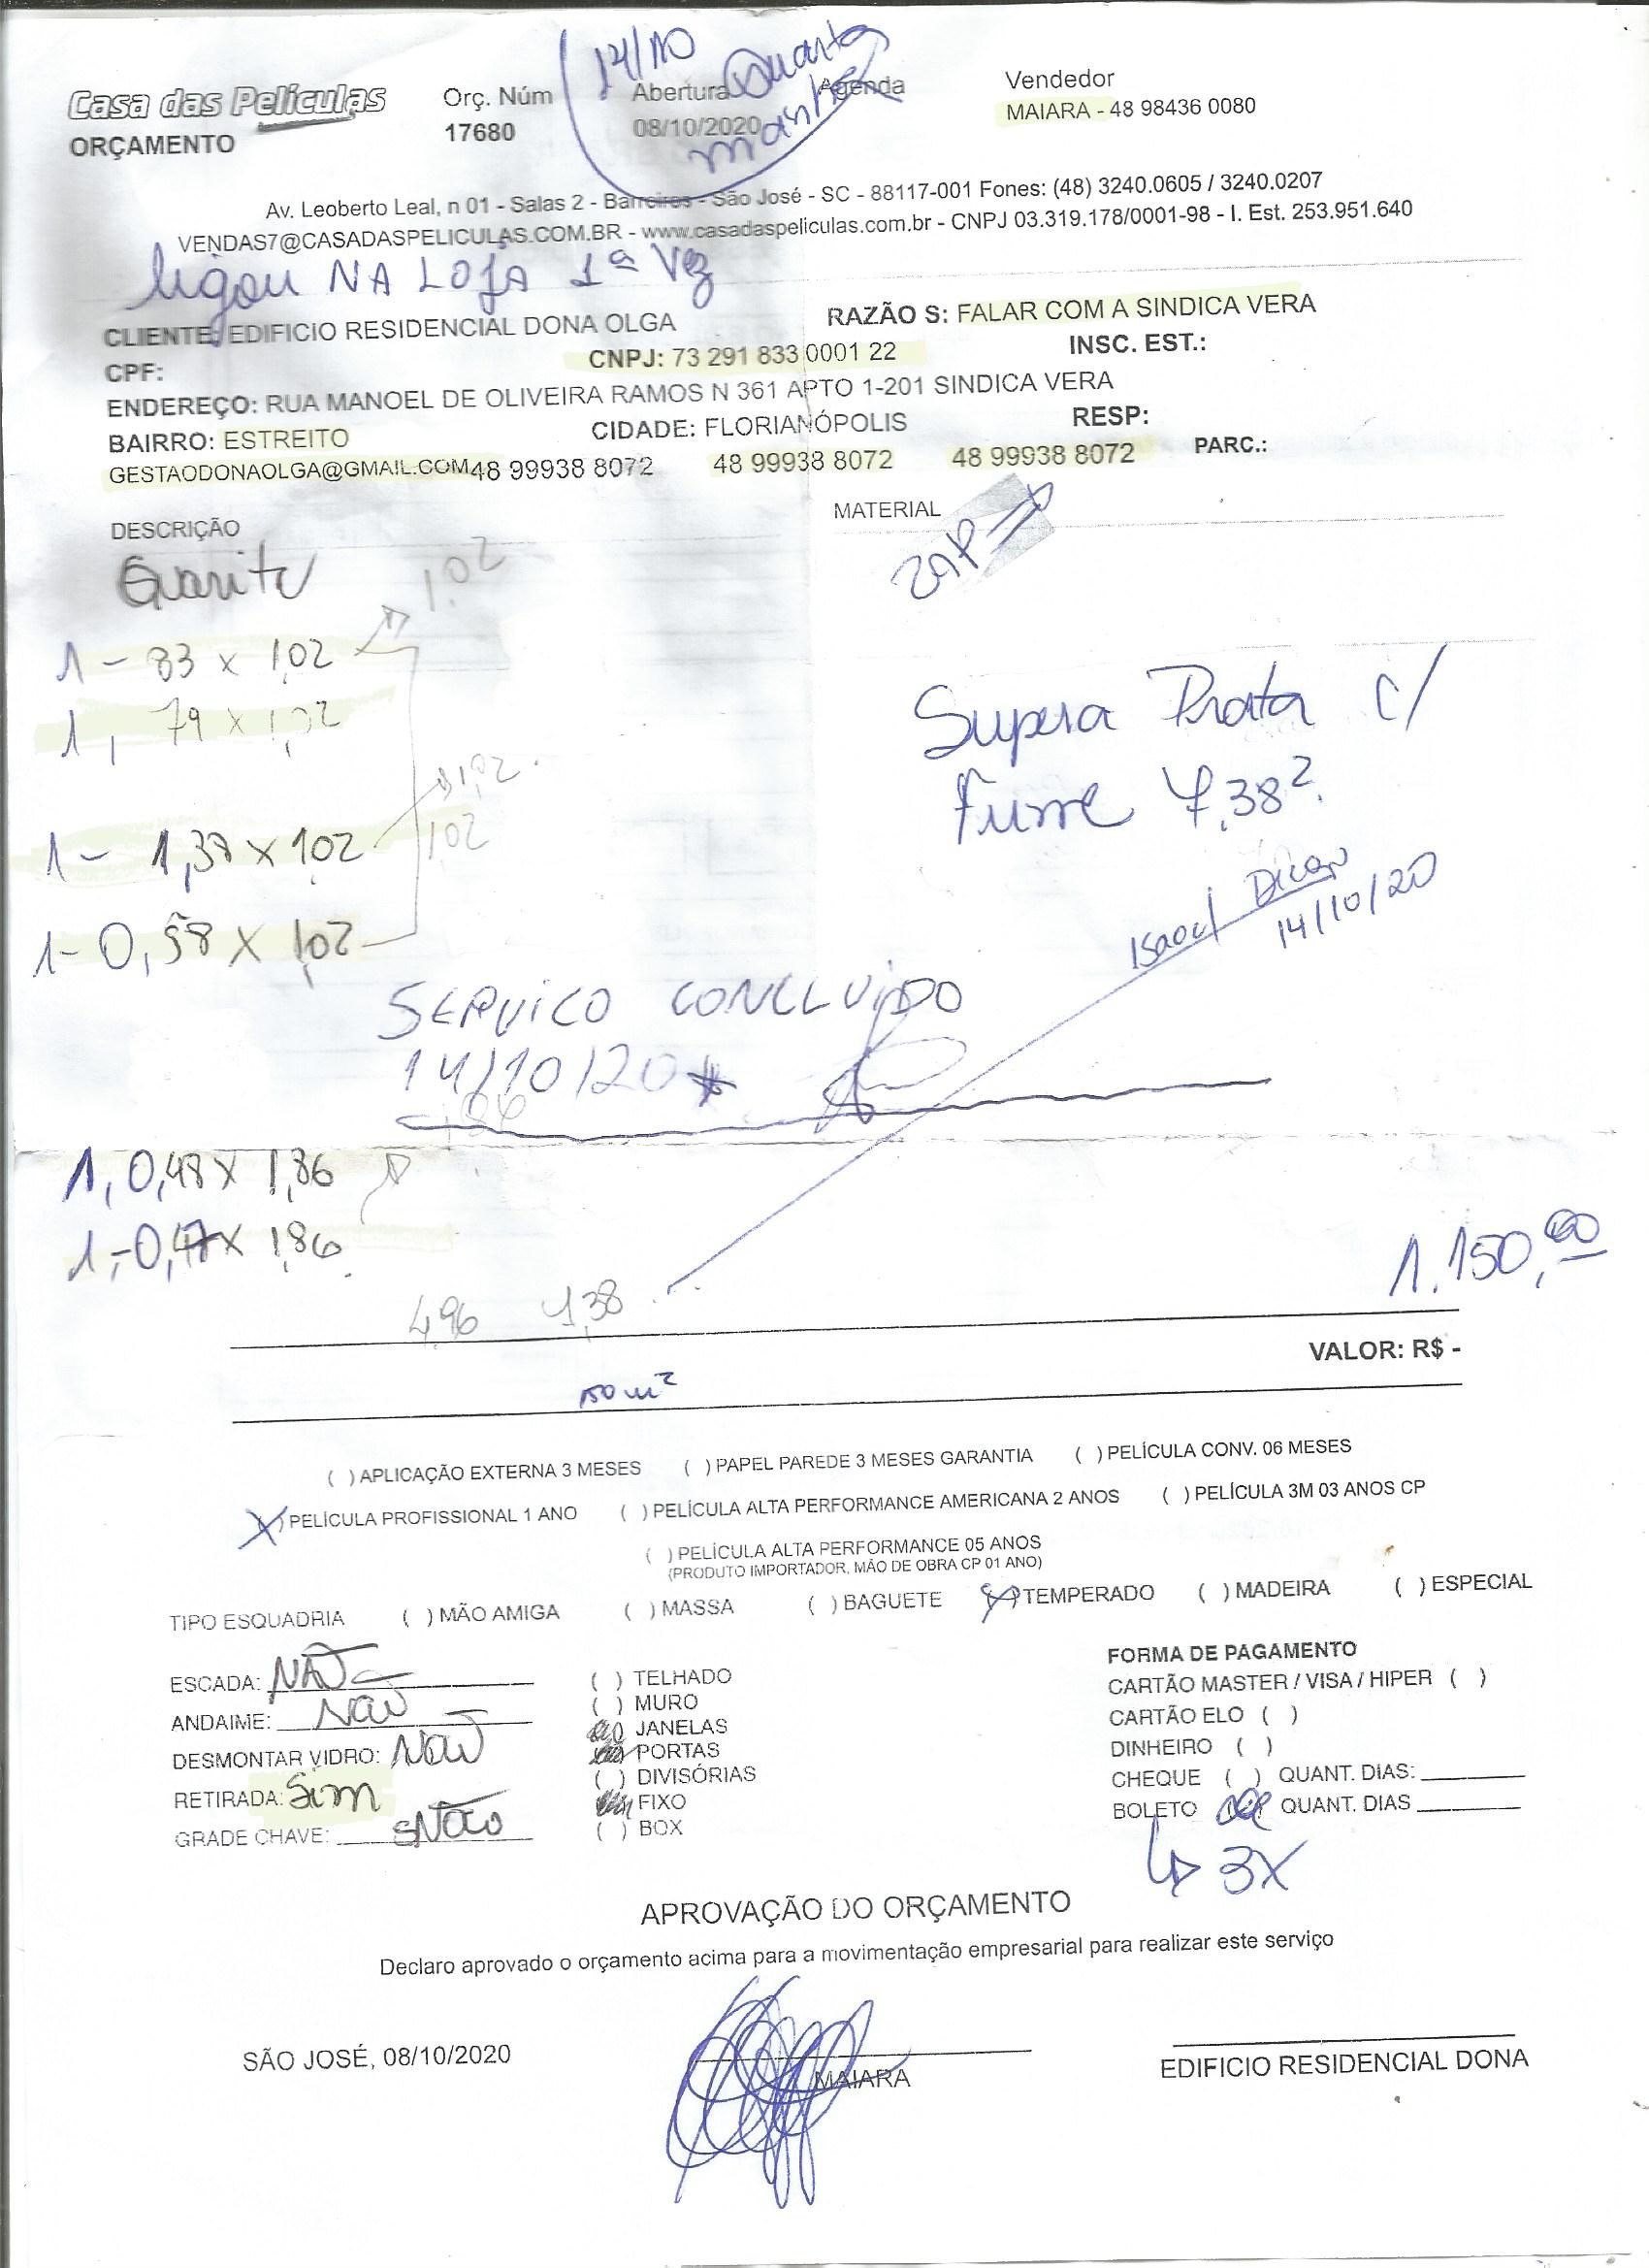 14/10 Quarta
manhã
Casa das Películas
ORÇAMENTO
Orç. Núm
17680
Abertura
08/10/2020
Agenda
Vendedor
MAIARA - 48 98436 0080
Av. Leoberto Leal, n 01 - Salas 2 - Barreiros - São José - SC - 88117-001 Fones: (48) 3240.0605 / 3240.0207
VENDAS7@CASADASPELICULAS.COM.BR - www.casadaspeliculas.com.br - CNPJ 03.319.178/0001-98 - I. Est. 253.951.640
ligou NA LOJA 1ª Vez
CLIENTE: EDIFICIO RESIDENCIAL DONA OLGA
RAZÃO S: FALAR COM A SINDICA VERA
CPF:
CNPJ: 73 291 833 0001 22
INSC. EST.:
ENDEREÇO: RUA MANOEL DE OLIVEIRA RAMOS N 361 APTO 1-201 SINDICA VERA
BAIRRO: ESTREITO
CIDADE: FLORIANÓPOLIS
RESP:
GESTAODONAOLGA@GMAIL.COM 48 99938 8072 48 99938 8072 48 99938 8072
PARC.:
DESCRIÇÃO
MATERIAL
Guarita
1,02
1 - 83 x 1,02
1, 79 x 1,02
1,02
1 - 1,37 x 1,02
1,02
1 - 0,58 x 1,02
Supera Prata c/
Fume 7,38²
Isaac/ Dicap
14/10/20
SERVICO CONCLUIDO
14/10/20
1,86
1, 0,48 x 1,86
1,-0,47 x 1,86
1.150,00
4,96 7,38
VALOR: R$ -
150 m²
( ) APLICAÇÃO EXTERNA 3 MESES ( ) PAPEL PAREDE 3 MESES GARANTIA ( ) PELÍCULA CONV. 06 MESES
(X) PELÍCULA PROFISSIONAL 1 ANO ( ) PELÍCULA ALTA PERFORMANCE AMERICANA 2 ANOS ( ) PELÍCULA 3M 03 ANOS CP
( ) PELÍCULA ALTA PERFORMANCE 05 ANOS
(PRODUTO IMPORTADOR, MÃO DE OBRA CP 01 ANO)
TIPO ESQUADRIA ( ) MÃO AMIGA ( ) MASSA ( ) BAGUETE (X) TEMPERADO ( ) MADEIRA ( ) ESPECIAL
ESCADA: NÃO
ANDAIME: NÃO
DESMONTAR VIDRO: NÃO
RETIRADA: Sim
GRADE CHAVE: NÃO
( ) TELHADO
( ) MURO
JANELAS
PORTAS
( ) DIVISÓRIAS
FIXO
( ) BOX
FORMA DE PAGAMENTO
CARTÃO MASTER / VISA / HIPER ( )
CARTÃO ELO ( )
DINHEIRO ( )
CHEQUE ( ) QUANT. DIAS:
BOLETO QUANT. DIAS
3X
APROVAÇÃO DO ORÇAMENTO
Declaro aprovado o orçamento acima para a movimentação empresarial para realizar este serviço
SÃO JOSÉ, 08/10/2020
MAIARA
EDIFICIO RESIDENCIAL DONA